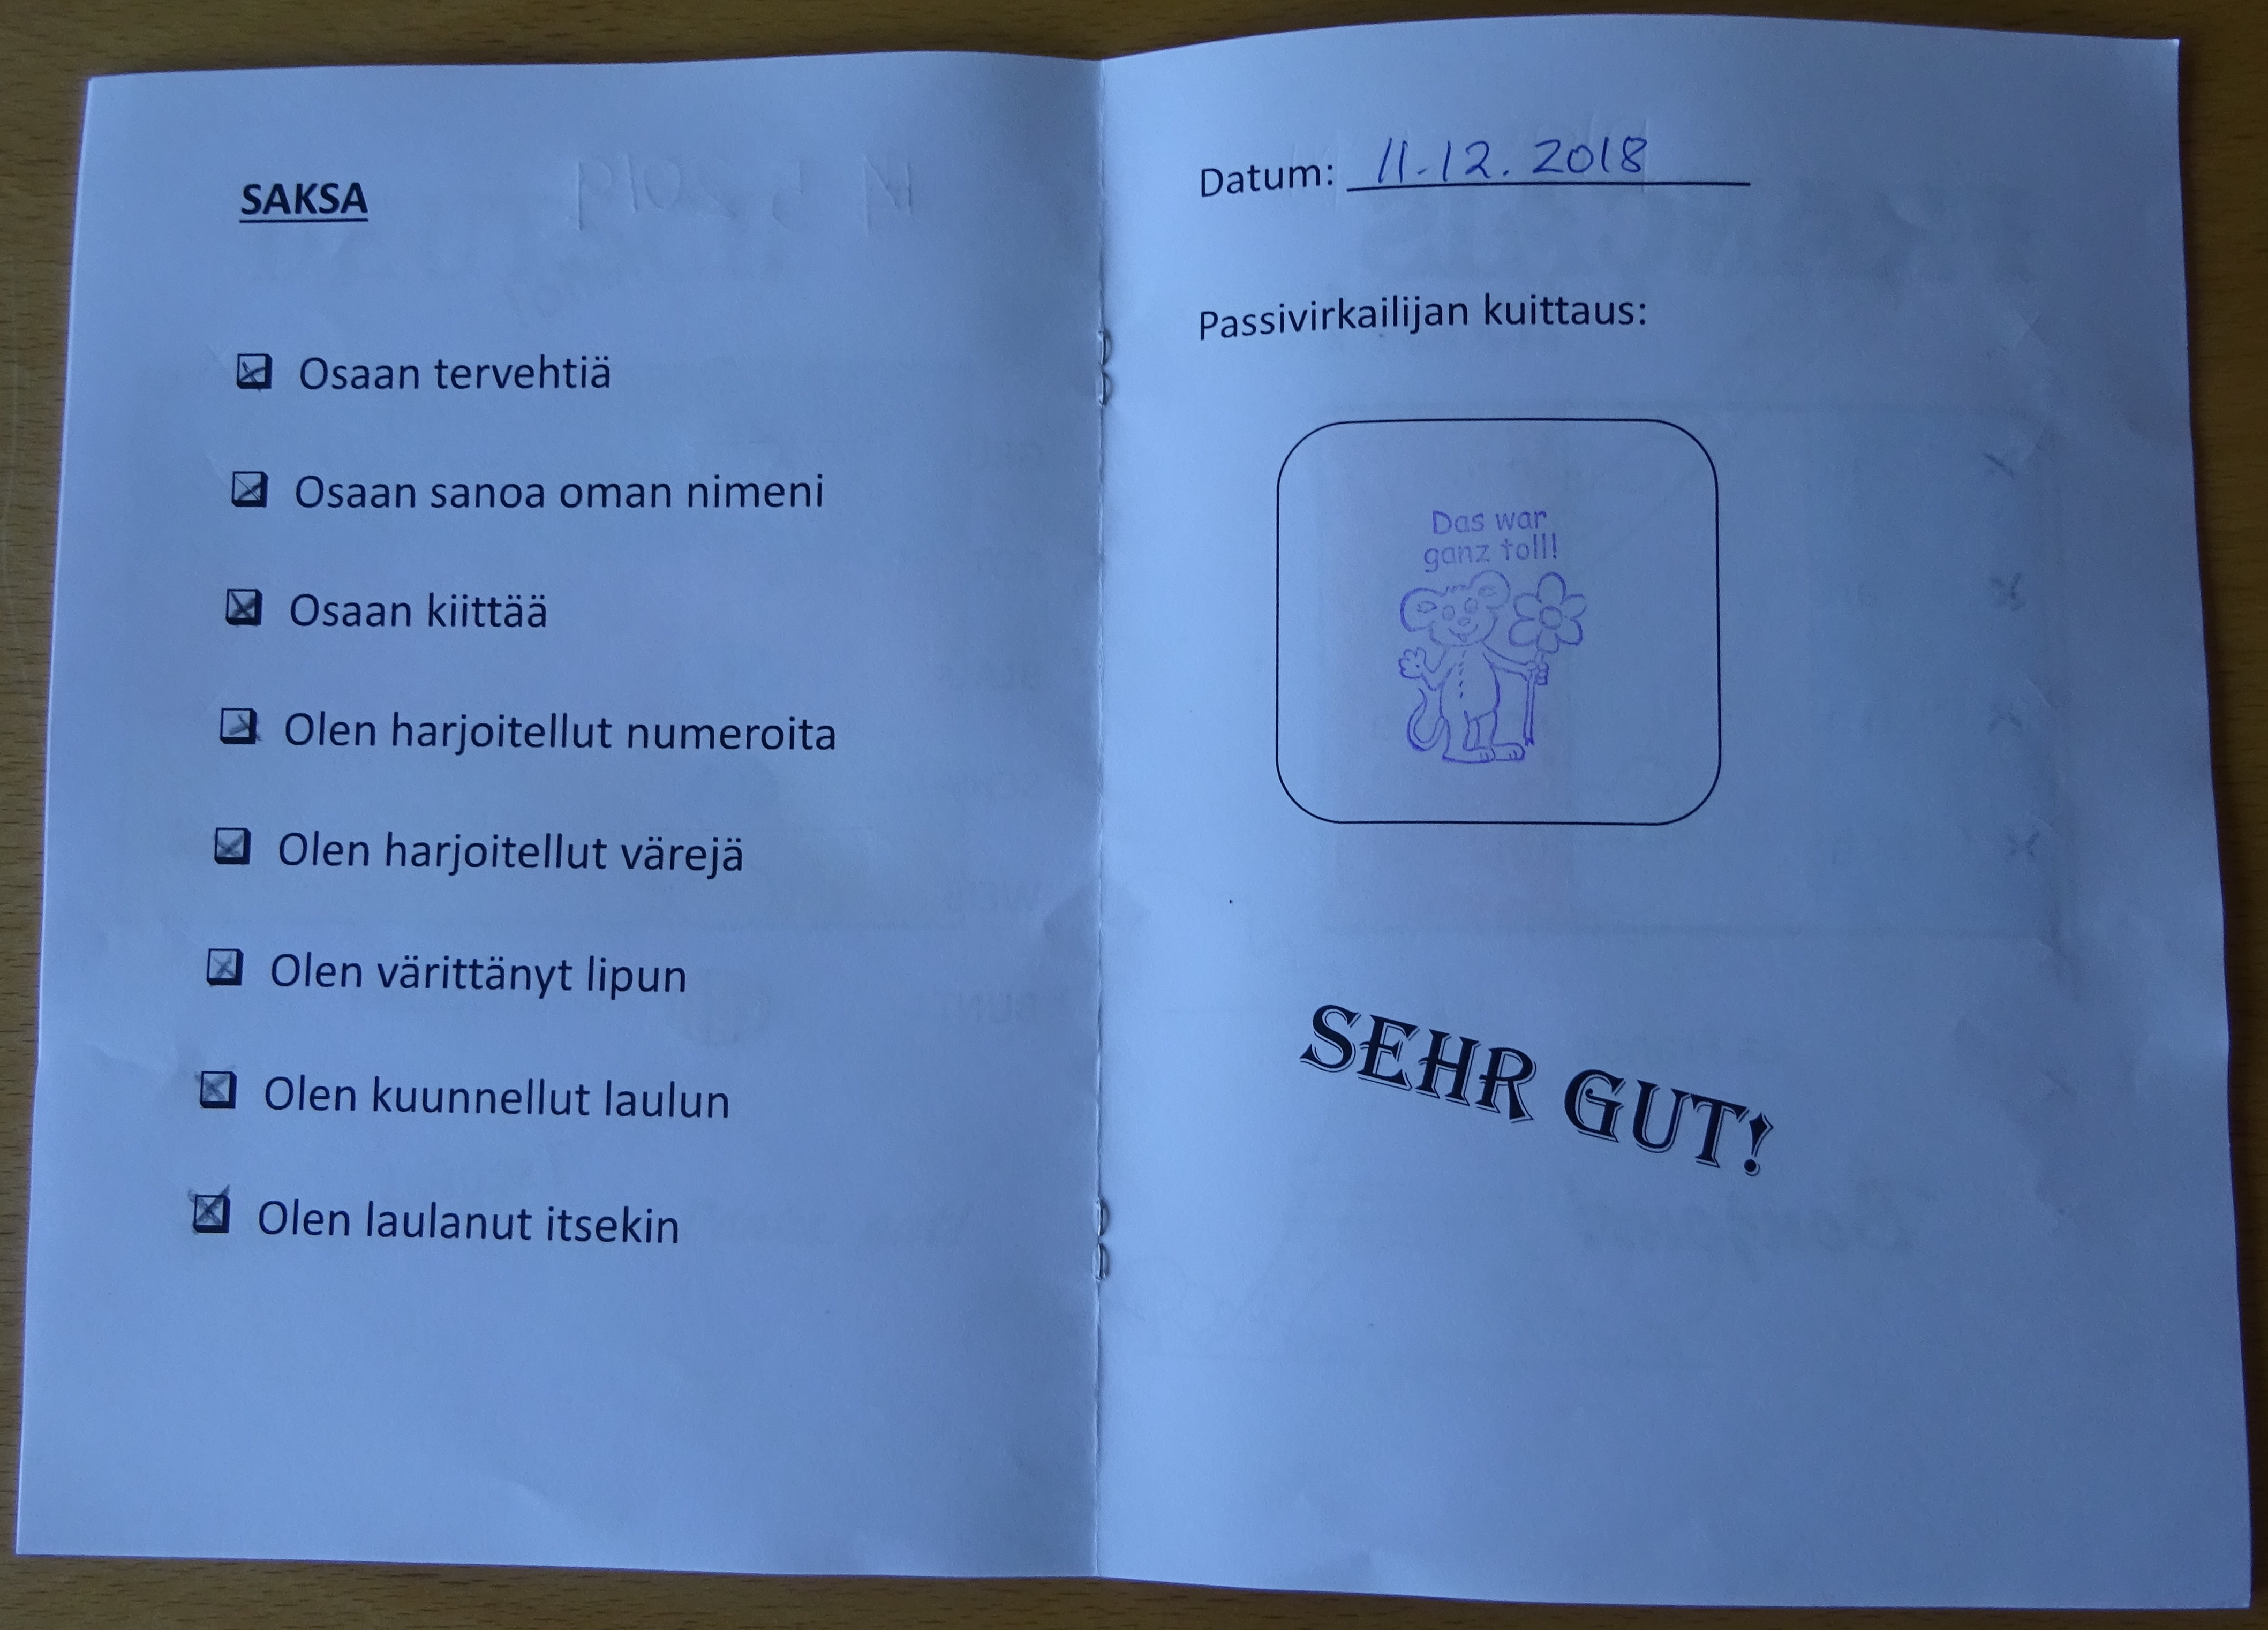 SAKSA
Osaan tervehtiä
Osaan sanoa oman nimeni
Osaan kiittää
Olen harjoitellut numeroita
Olen harjoitellut värejä
Olen värittänyt lipun
Olen kuunnellut laulun
Olen laulanut itsekin
Datum: 11.12.2018
Passivirkailijan kuittaus:
Das war
ganz toll!
SEHR GUT!